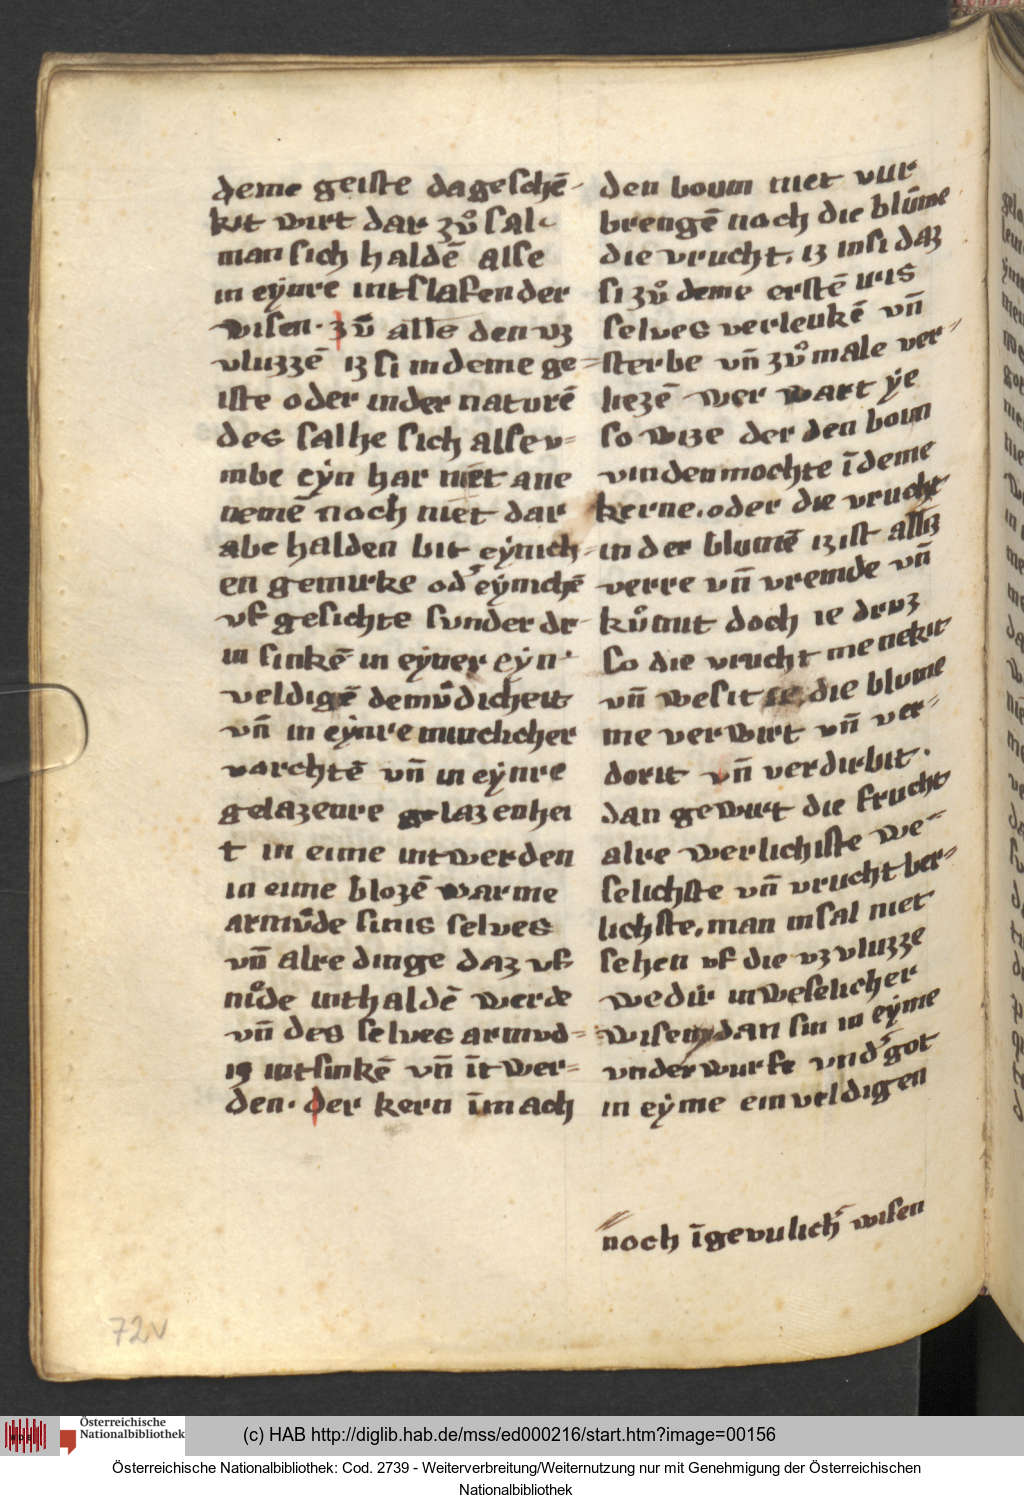 deme geiste dageschē-
kit wirt dar zuͦ sal
man sich haldē alse
in eẏnre intslafender
wisen. zuͦ alle den vz
vluzzē iz si in deme ge=
iste oder inder naturē
des salhe sich alse v=
mbe eẏn har niet ane
nemē noch niet dar
abe halden bit eẏnich=
en gemurke od' eẏnichē
vf gesichte sunder dr-
in sinkē in eẏner eẏn
veldigē demuͦdicheit
vn̄ in eẏnre minclicher
vorchtē vn̄ in eẏnre
gelazenre gelazenhei
t in eime intwerden
in eime blozē warme
armuͦde sinis selves
vn̄ alre dinge daz vf
nuͦde inthaldē werde
vn̄ des selves armvd=
is intsinkē vn̄ īt wer=
den. der kern īm ach
den boum niet vur
brengē noch die blūme
die vrucht. iz insi daz
si zuͦ deme erstē irs
selves verleukē vn̄
sterbe vn̄ zuͦ male ver=
liezē wer wart ẏe
so wize der den boun
vinden mochte ī deme
kerne. oder die vrucht
in der blumē iz ist alliz
verre vn̄ vremde vn̄
kuͦmit doch ie druz
so die vrucht me nekit
vn̄ wesit ie die blume
me verwirt vn̄ ver=
dorit vn̄ verdirbit.
dan gewint die frucht
alre werlichiste we=
selichste vn̄ vrucht ber=
lichste. man insal niet
sehen vf die vz vluzze
wedir inweselicher
wisen dan sin in eẏme
vnderwurfe vnd' got
in eẏme einveldigen
noch īgevulich' wisen
72v
Österreichische
Nationalbibliothek
(c) HAB http://diglib.hab.de/mss/ed000216/start.htm?image=00156
Österreichische Nationalbibliothek: Cod. 2739 - Weiterverbreitung/Weiternutzung nur mit Genehmigung der Österreichischen
Nationalbibliothek